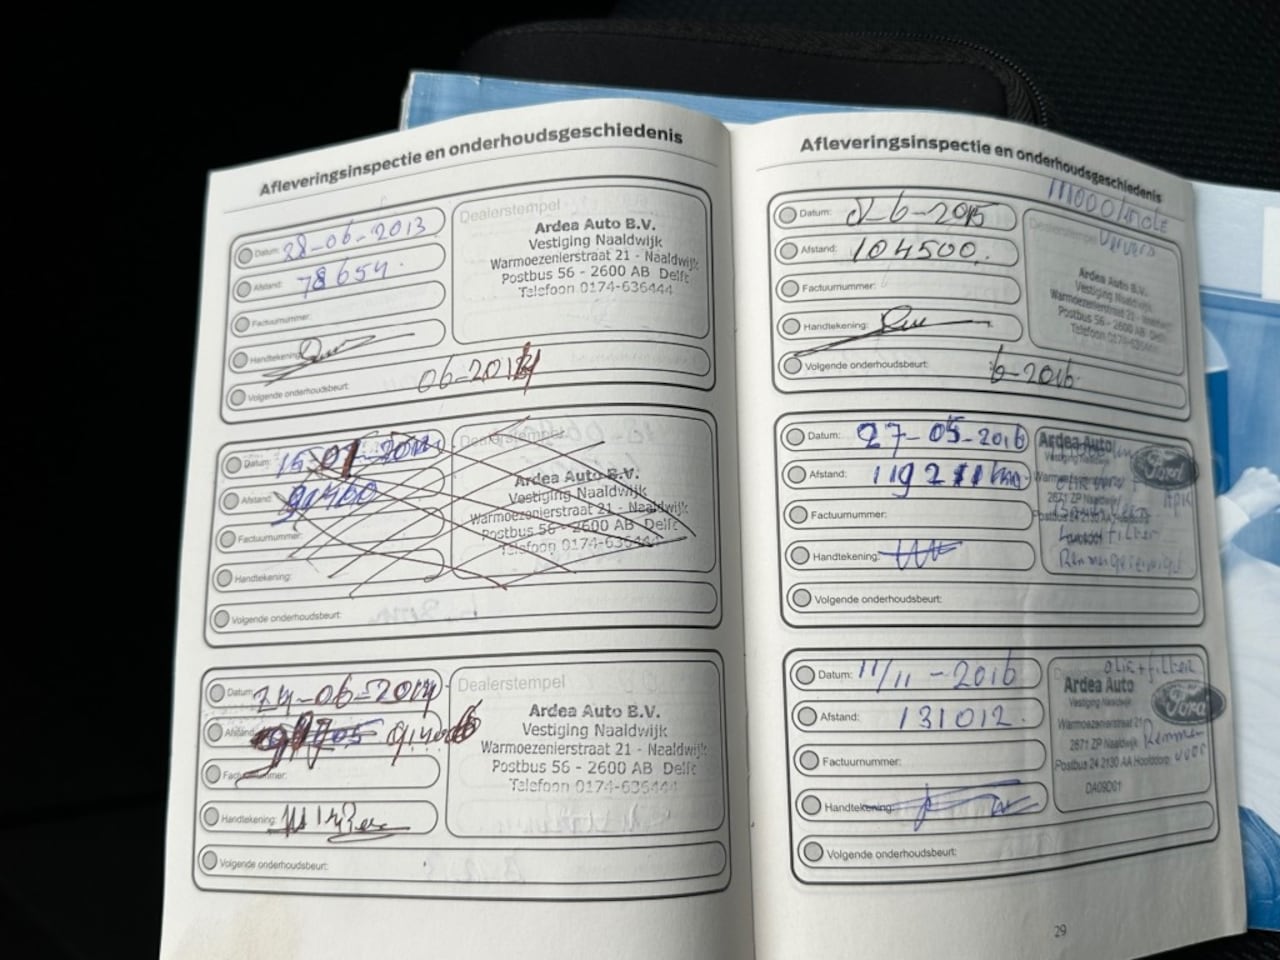 Afleveringsinspectie en onderhoudsgeschiedenis
Datum: 28-06-2013
Afstand: 78654.
Factuurnummer:
Handtekening:
Volgende onderhoudsbeurt: 06-2014
Dealerstempel
Ardea Auto B.V.
Vestiging Naaldwijk
Warmoezenierstraat 21 - Naaldwijk
Postbus 56 - 2600 AB Delft
Telefoon 0174-636444
Datum:
Afstand: 91460
Factuurnummer:
Handtekening:
Volgende onderhoudsbeurt:
Dealerstempel
Ardea Auto B.V.
Vestiging Naaldwijk
Warmoezenierstraat 21 - Naaldwijk
Postbus 56 - 2600 AB Delft
Telefoon 0174-636444
Datum: 24-06-2014
Afstand:
Factuurnummer:
Handtekening:
Volgende onderhoudsbeurt:
Dealerstempel
Ardea Auto B.V.
Vestiging Naaldwijk
Warmoezenierstraat 21 - Naaldwijk
Postbus 56 - 2600 AB Delft
Telefoon 0174-636444
Afleveringsinspectie en onderhoudsgeschiedenis
Datum: 2-6-2015
Afstand: 104500.
Factuurnummer:
Handtekening:
Volgende onderhoudsbeurt: 6-2016
Dealerstempel
Ardea Auto B.V.
Vestiging Naaldwijk
Warmoezenierstraat 21 - Naaldwijk
Postbus 56 - 2600 AB Delft
Telefoon 0174-636444
Datum: 27-05-2016
Afstand: 119211 km
Factuurnummer:
Handtekening:
Volgende onderhoudsbeurt:
Ardea Auto
Ford
2671 ZP Naaldwijk
filter
Remmen gereinigd
Datum: 11/11-2016
Afstand: 131012.
Factuurnummer:
Handtekening:
Volgende onderhoudsbeurt:
olie+filter
Ardea Auto
Vestiging Naaldwijk
Ford
Warmoezenierstraat 21
2671 ZP Naaldwijk
Remmen
voor
Postbus 24 2130 AA Hoofddorp
DA09D01
29